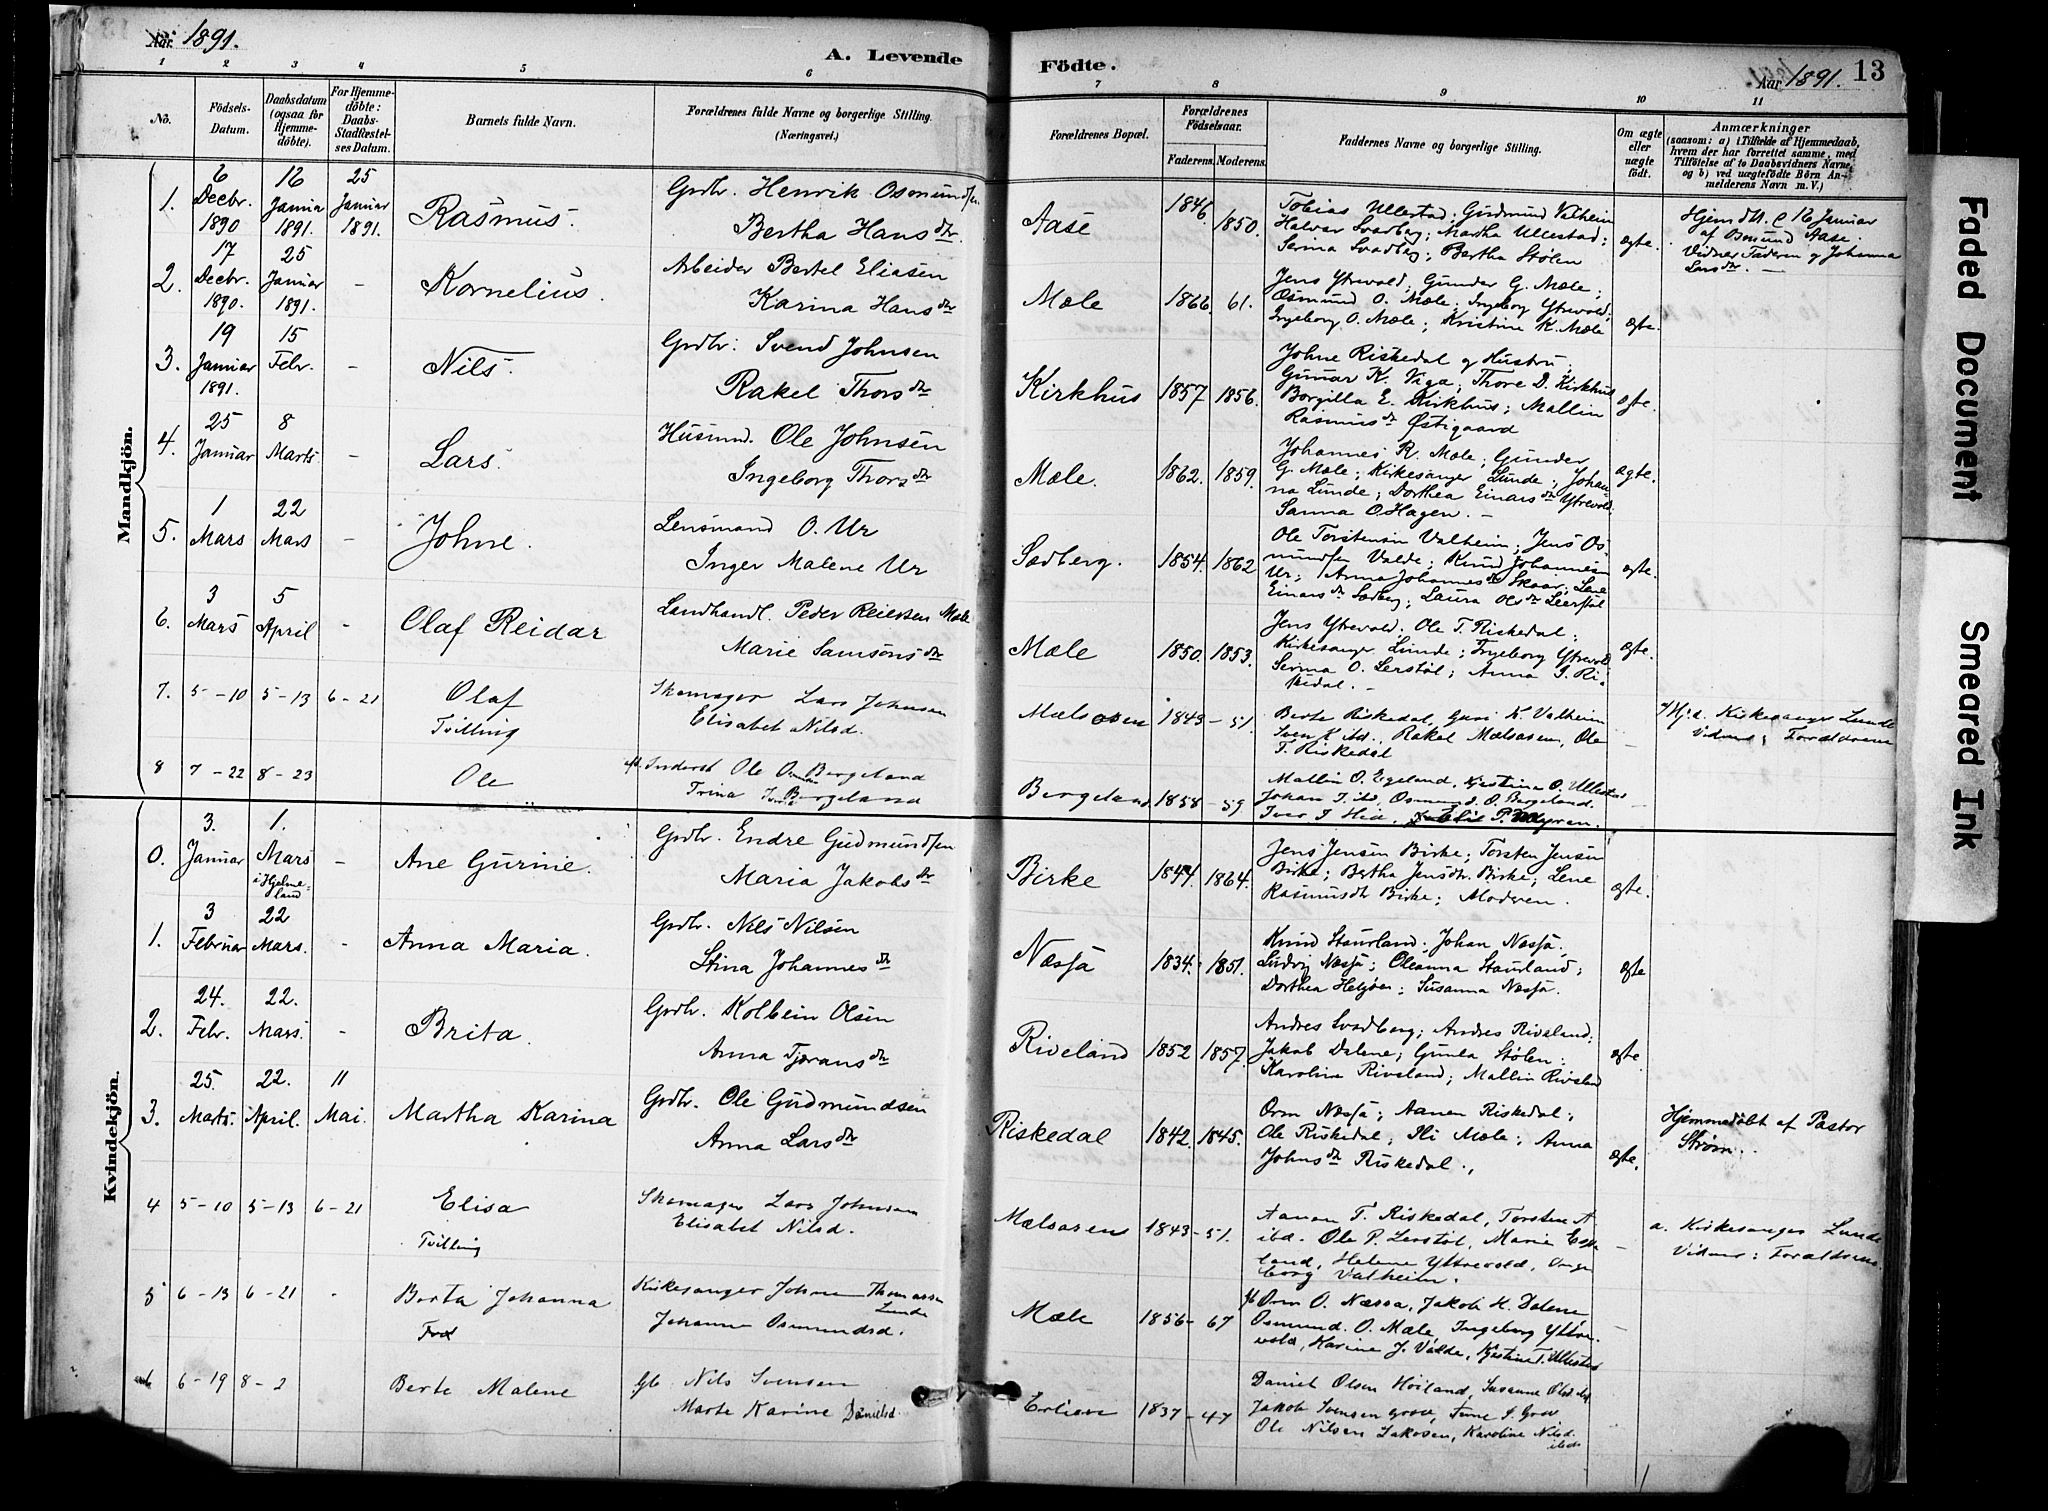 Aar 1891.
A. Levende
Födte.
Aar 1891.
13
1 2 3 4 5 6
7 8 9 10 11
No.
Födsels-
Datum.
Daabsdatum
(ogsaa for
Hjemme-
döbte).
For Hjemme-
döbte:
Daabs-
Stadfæstel-
ses Datum.
Barnets fulde Navn.
Forældrenes fulde Navne og borgerlige Stilling.
(Næringsvei.)
Forældrenes Bopæl.
Forældrenes
Födselsaar.
Faderens. Moderens.
Faddernes Navne og borgerlige Stilling.
Om ægte
eller
uægte
födt.
Anmærkninger
(saasom: a) i Tilfælde af Hjemmedaab,
hvem der har forrettet samme, med
Tilföielse af to Daabsvidners Navne,
og b) ved uægtefödte Börn An-
melderens Navn m. V.)
Mandkjön.
1.
6
Decbr.
1890
16
Januar
1891.
25
Januar
1891.
Rasmus.
Grdbr. Henrik Osmundsen
Bertha Hansdtr.
Aase
1846
1850.
Tobias Ullestad; Gudmund Valheim
Halvar Svadberg; Martha Ullestad;
Serina Svadberg; Bertha Stølen
ægte.
Hjemdt. 16 Januar
af Aase.
Vidner Faderen og Johanna
Larsdtr. —
2.
17
Decbr.
1890.
25
Januar
1891.
-
Kornelius.
Arbeider Bertel Eliasen
Karina Hansdtr
Mæle
1866.
61.
Jens Ytrevold; Gunder G. Mæle;
Osmund O. Mæle; Ingeborg Ytrevold;
Ingeborg O. Mæle; Kristine K. Mæle
ægte.
3.
19
Januar
1891.
15
Febr.
-
Nils.
Grdbr. Svend Johnsen
Rakel Thorsdtr
Kirkhus
1857
1856.
Johne Riskedal og Hustru;
Gunnar K. Viga; Thore D. Kirkhus
Borgilla E. Kirkhus; Mallin
Rasmusdtr Østigaard
ægte.
4.
25
Januar
8
Marts
-
Lars.
Husmd. Ole Johnsen
Ingeborg Thorsdtr
Mæle.
1862.
1859.
Johannes R. Mæle; Gunder
G. Mæle; Kirkesanger Lunde; Johan-
na Lunde; Dorthea Einarsdtr Ytrevold
Sanna O. Hagen. —
ægte.
5.
1
Mars
22
Mars
-
Johne.
Lensmand O. Ur
Inger Malene Ur
Sædberg.
1854.
1862
Ole Torstensen Valheim; Jens Os-
mundsen Valde; Knud Johannesen
Ur; Anna Johannesdtr Skaar; Lene
Einarsdtr Sædberg; Laura Olsdtr Leerstøl
ægte.
6.
3
Mars
5
April
-
Olaf Reidar
Landhandl. Peder Reiersen Mæle
Marie Samsonsdtr
Mæle
1850.
1853.
Jens Ytrevold; Ole T. Riskedal;
Kirkesanger Lunde; Ingeborg Ytrevold
Serina O. Lerstøl; Anna S. Ri-
skedal. —
ægte.
7.
5-10
5-13
6-21
Olaf
Tvilling
Skomager Lars Johnsen
Elisabet Nilsd.
Mælsosen
1843-51.
Berte Riskedal, Guri K. Valheim
Sven K. ibd., Rakel Mælsosen, Ole
T. Riskedal
-
Hj. d. Kirkesanger Lunde
Vidner; Forældrene
8
7-22
8-23
Ole
Inderst Ole Bergeland
Trina Bergeland
Bergeland
1858-59
Mallin O. Egeland, Kjestine O. Ullestad
Johan T. ibd, Osmund O. Bergeland.
Iver I. Hia,
Kvindekjön.
0.
3.
Januar
1.
Mars
i Hjelme-
land
-
Ane Gurine.
Grdbr. Endre Gudmundsen
Maria Jakobsdtr
Birke
1844.
1864.
Jens Jensen Birke; Torsten Jensen
Birke; Bertha Jensdtr. Birke; Lene
Rasmusdtr Birke; Moderen.
ægte.
1.
3
Februar
22
Mars.
-
Anna Maria.
Grdbr. Nils Nilsen
Stina Johannesdtr
Næssa
1834.
1851.
Knud Staurland; Johan Næssa;
Ludvig Næssa; Oleanna Staurland;
Dorthea Heljøen; Susanna Næssa.
ægte
2.
24.
Febr.
22.
Mars.
-
Brita.
Grdbr. Kolbein Olsen
Anna Tjøransdtr
Riveland
1852
1857.
Andres Svadberg; Andres Riveland;
Jakob Dalene; Gunla Stølen;
Karoline Riveland; Mallin Riveland
ægte.
3.
25.
Marts.
22.
April.
11
Mai.
Martha Karina
Grdbr. Ole Gudmundsen
Anna Larsdtr
Riskedal
1842.
1845.
Orm Næssa; Aanen Riskedal;
Ole Riskedal; Sli Mæle; Anna
Johnsdtr Riskedal.,
ægte.
Hjemmedøbt af Pastor
Strøm.
4
5-10
5-13
6-21
Elisa
Tvilling
Skomager Lars Johnsen
Elisabet Nilsd.
Mælsosen
1843-51.
Aanen T. Riskedal, Torsten A
ibd. Ole P. Lerstøl, Marie Ege-
land, Helene Yttrevold, Inge-
borg Valheim.
-
a. Kirkesanger Lunde
Vidner; Forældrene.
5
6-13
6-21
-
Berta Johanna
Kirkesanger Johne Thomassen
Lunde
Johanne Osmundsd.
Mæle
1856-67
Orm O. Næssa, Jakob H. Dalene
Osmund. O. Mæle, Ingeborg Yttre-
vold, Karine J. Valde, Kjestine T. Ullestad
-
6
6-19
8-2
Berte Malene
Gb. Nils Svensen
Marte Karine Danielsd.
1837-47
Daniel Olsen Høiland, Susanne
Jakob Svensen Grov, Tune S. Grov
Ole Nilsen Jakosen, Karoline Nilsd.
ibd.
Faded Document
Smeared Ink